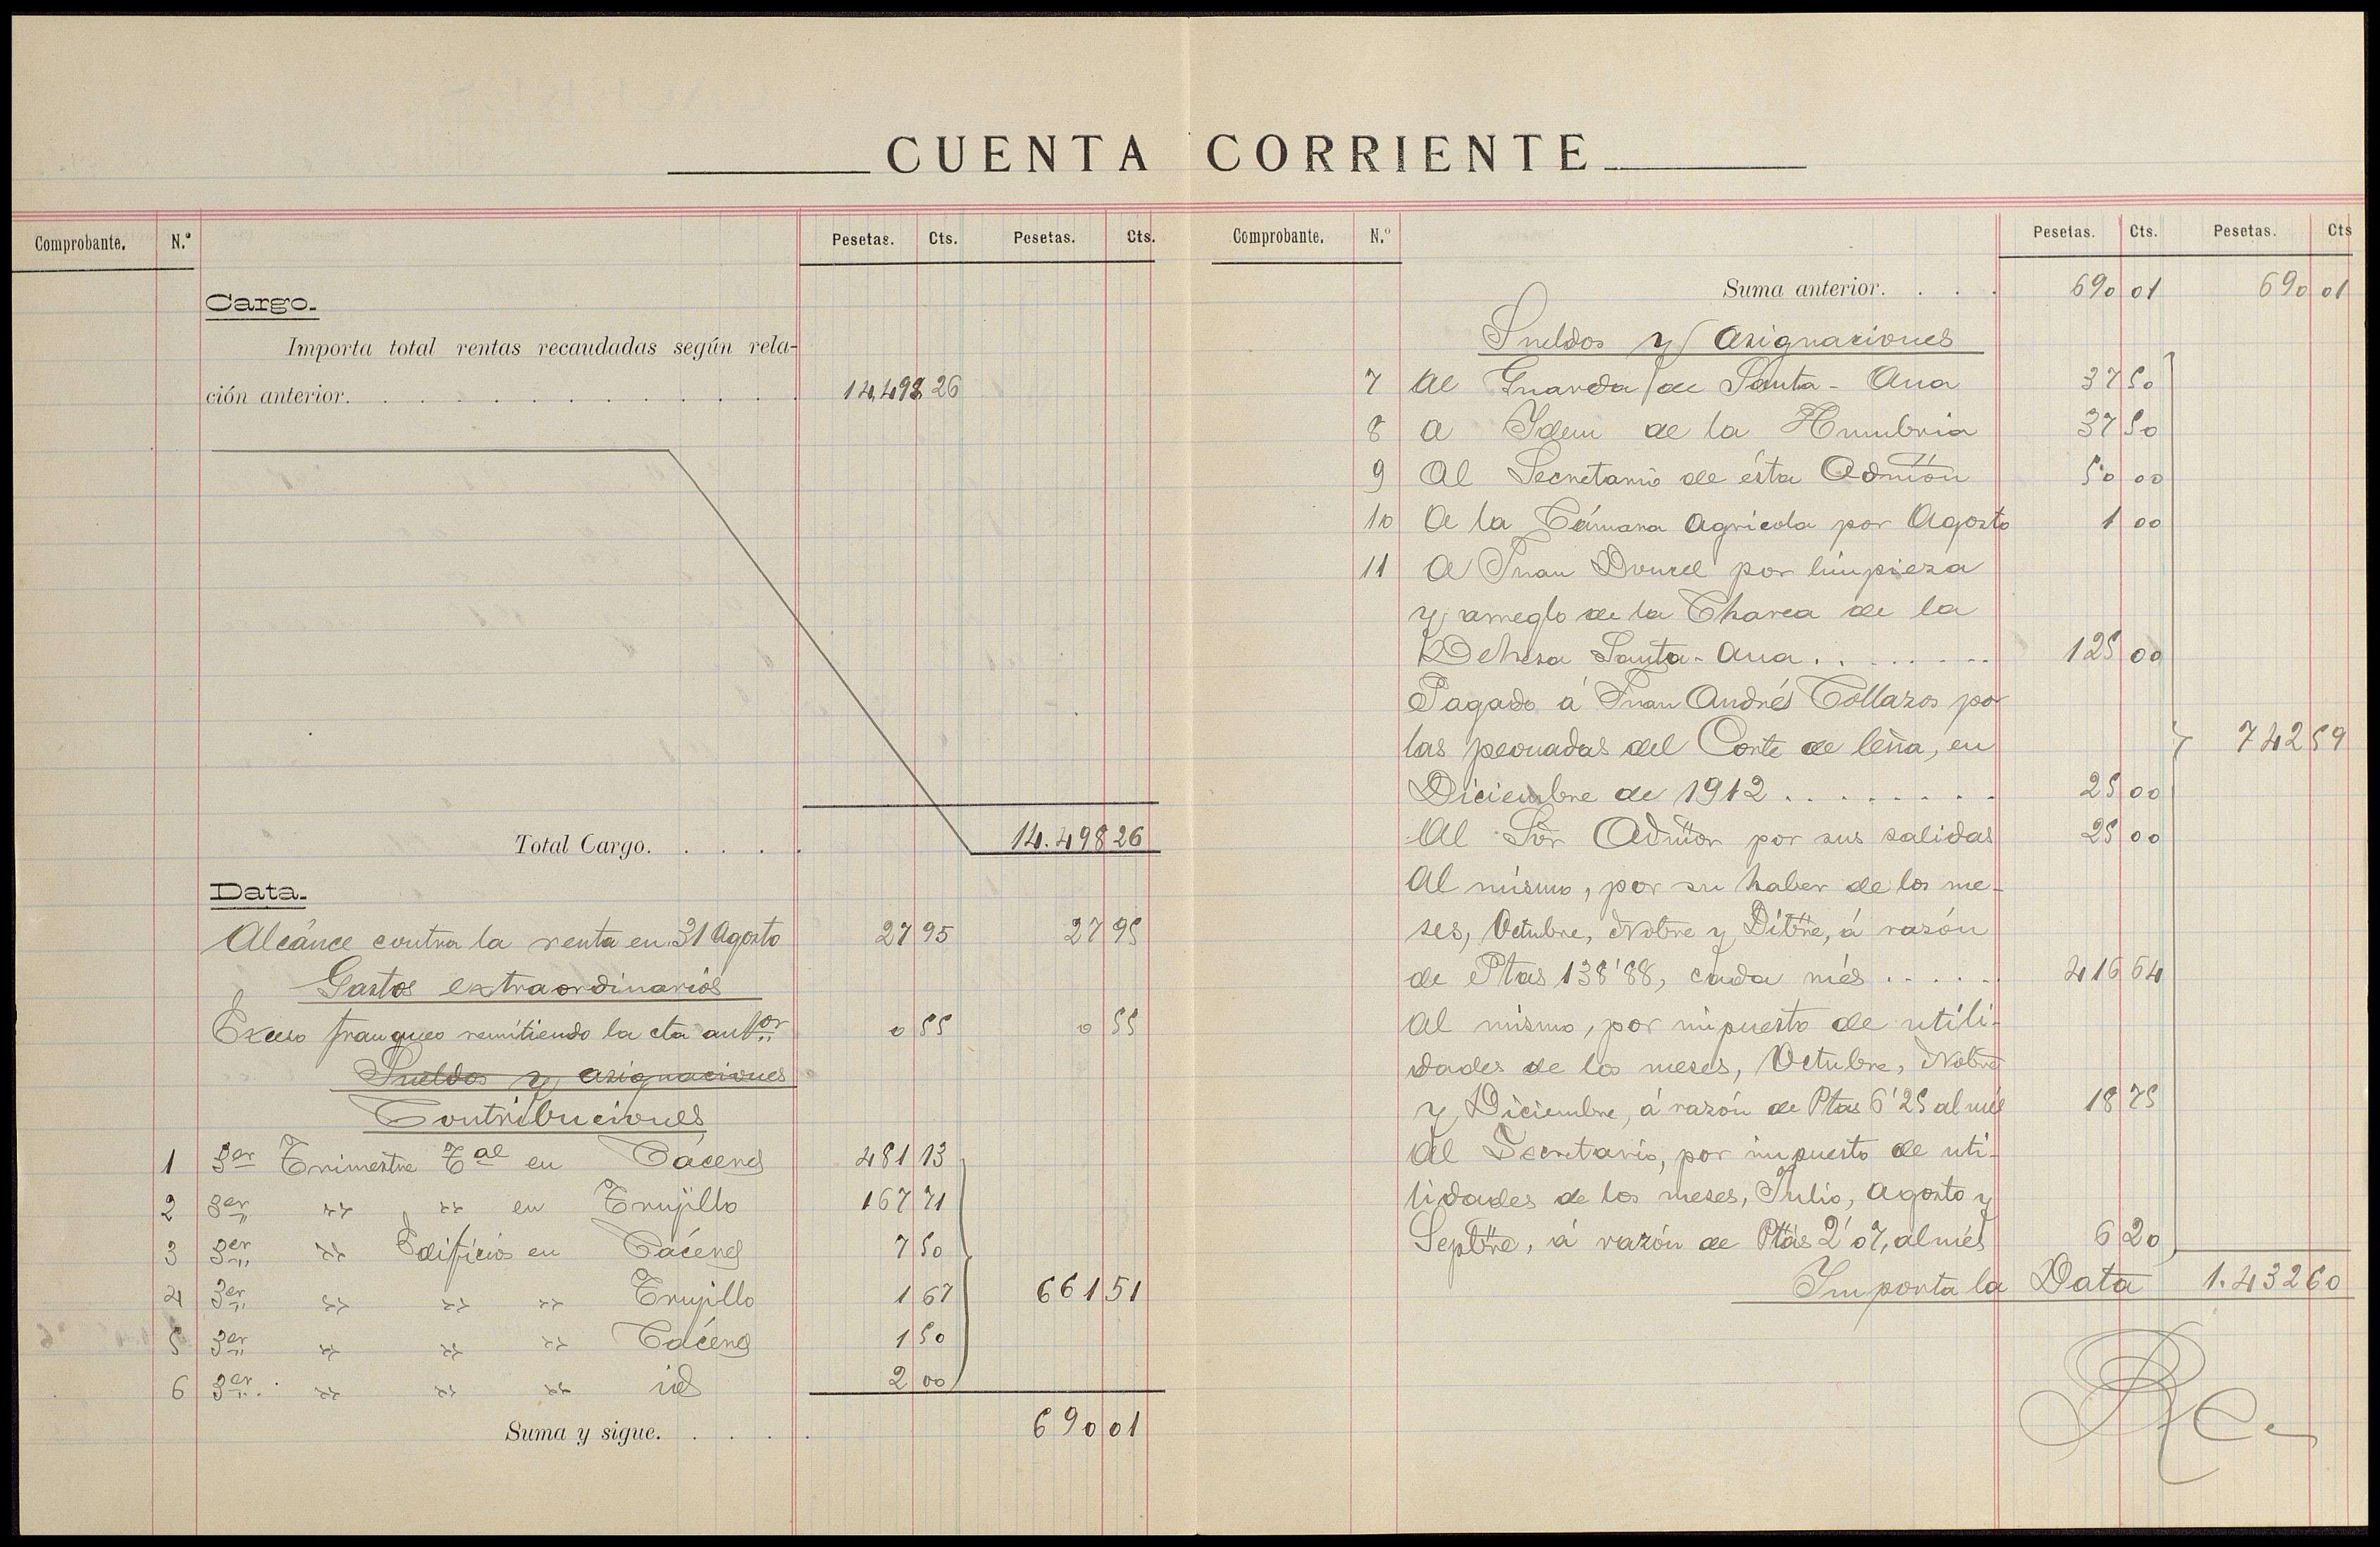 CUENTA CORRIENTE
Comprobante. N.º Pesetas. Cts. Pesetas. Cts.
Cargo.-
Importa total rentas recaudadas según rela-
ción anterior. . . . . . . . . . . . . 14,498 26
Total Cargo. . . . . 14.498 26
Data.-
Alcánce contra la renta en 31 Agosto 27 95 27 95
Gastos extraordinarios
Exceso franqueo remitiendo la cta antor 0 55 0 55
Sueldos y asignaciones
Contribuciones
1 3er Trimestre Tal en Cáceres 481 13
2 3er " " en Trujillo 167 71
3 3er " Edificios en Cáceres 7 50
4 3er " " " Trujillo 1 67 661 51
5 3er " " " Cáceres 1 50
6 3er " " " id 2 00
Suma y sigue. . . . . 690 01
Comprobante. N.º Pesetas. Cts. Pesetas. Cts
Suma anterior. . . . 690 01 690 01
Sueldos y Asignaciones
7 Al Guarda de Santa-Ana 37 50
8 A Idem de la Humbria 37 50
9 Al Secretario de ésta Admión 50 00
10 A la Cámara Agricola por Agosto 1 00
11 A Juan Doncel por limpieza
y arreglo de la Charca de la
Dehesa Santa-Ana. . . . . . . . 125 00
Pagado á Juan Andrés Collazos por
las peonadas del Corte de leña, en 742 59
Diciembre de 1912 . . . . . . . . 25 00
Al Sör Admor por sus salidas 25 00
Al mismo, por su haber de los me-
ses, Octubre, Nobre y Dibre, á razón
de Ptas 138'88, cada més . . . . . 416 64
Al mismo, por impuesto de utili-
dades de los meses, Octubre, Nobre
y Diciembre, á razón de Ptas 6'25 al més 18 75
Al Secretario, por impuesto de uti-
lidades de los meses, Julio, Agosto y
Septbre, á razón de Ptas 2'07, al més 6 20
Importa la Data 1.432 60